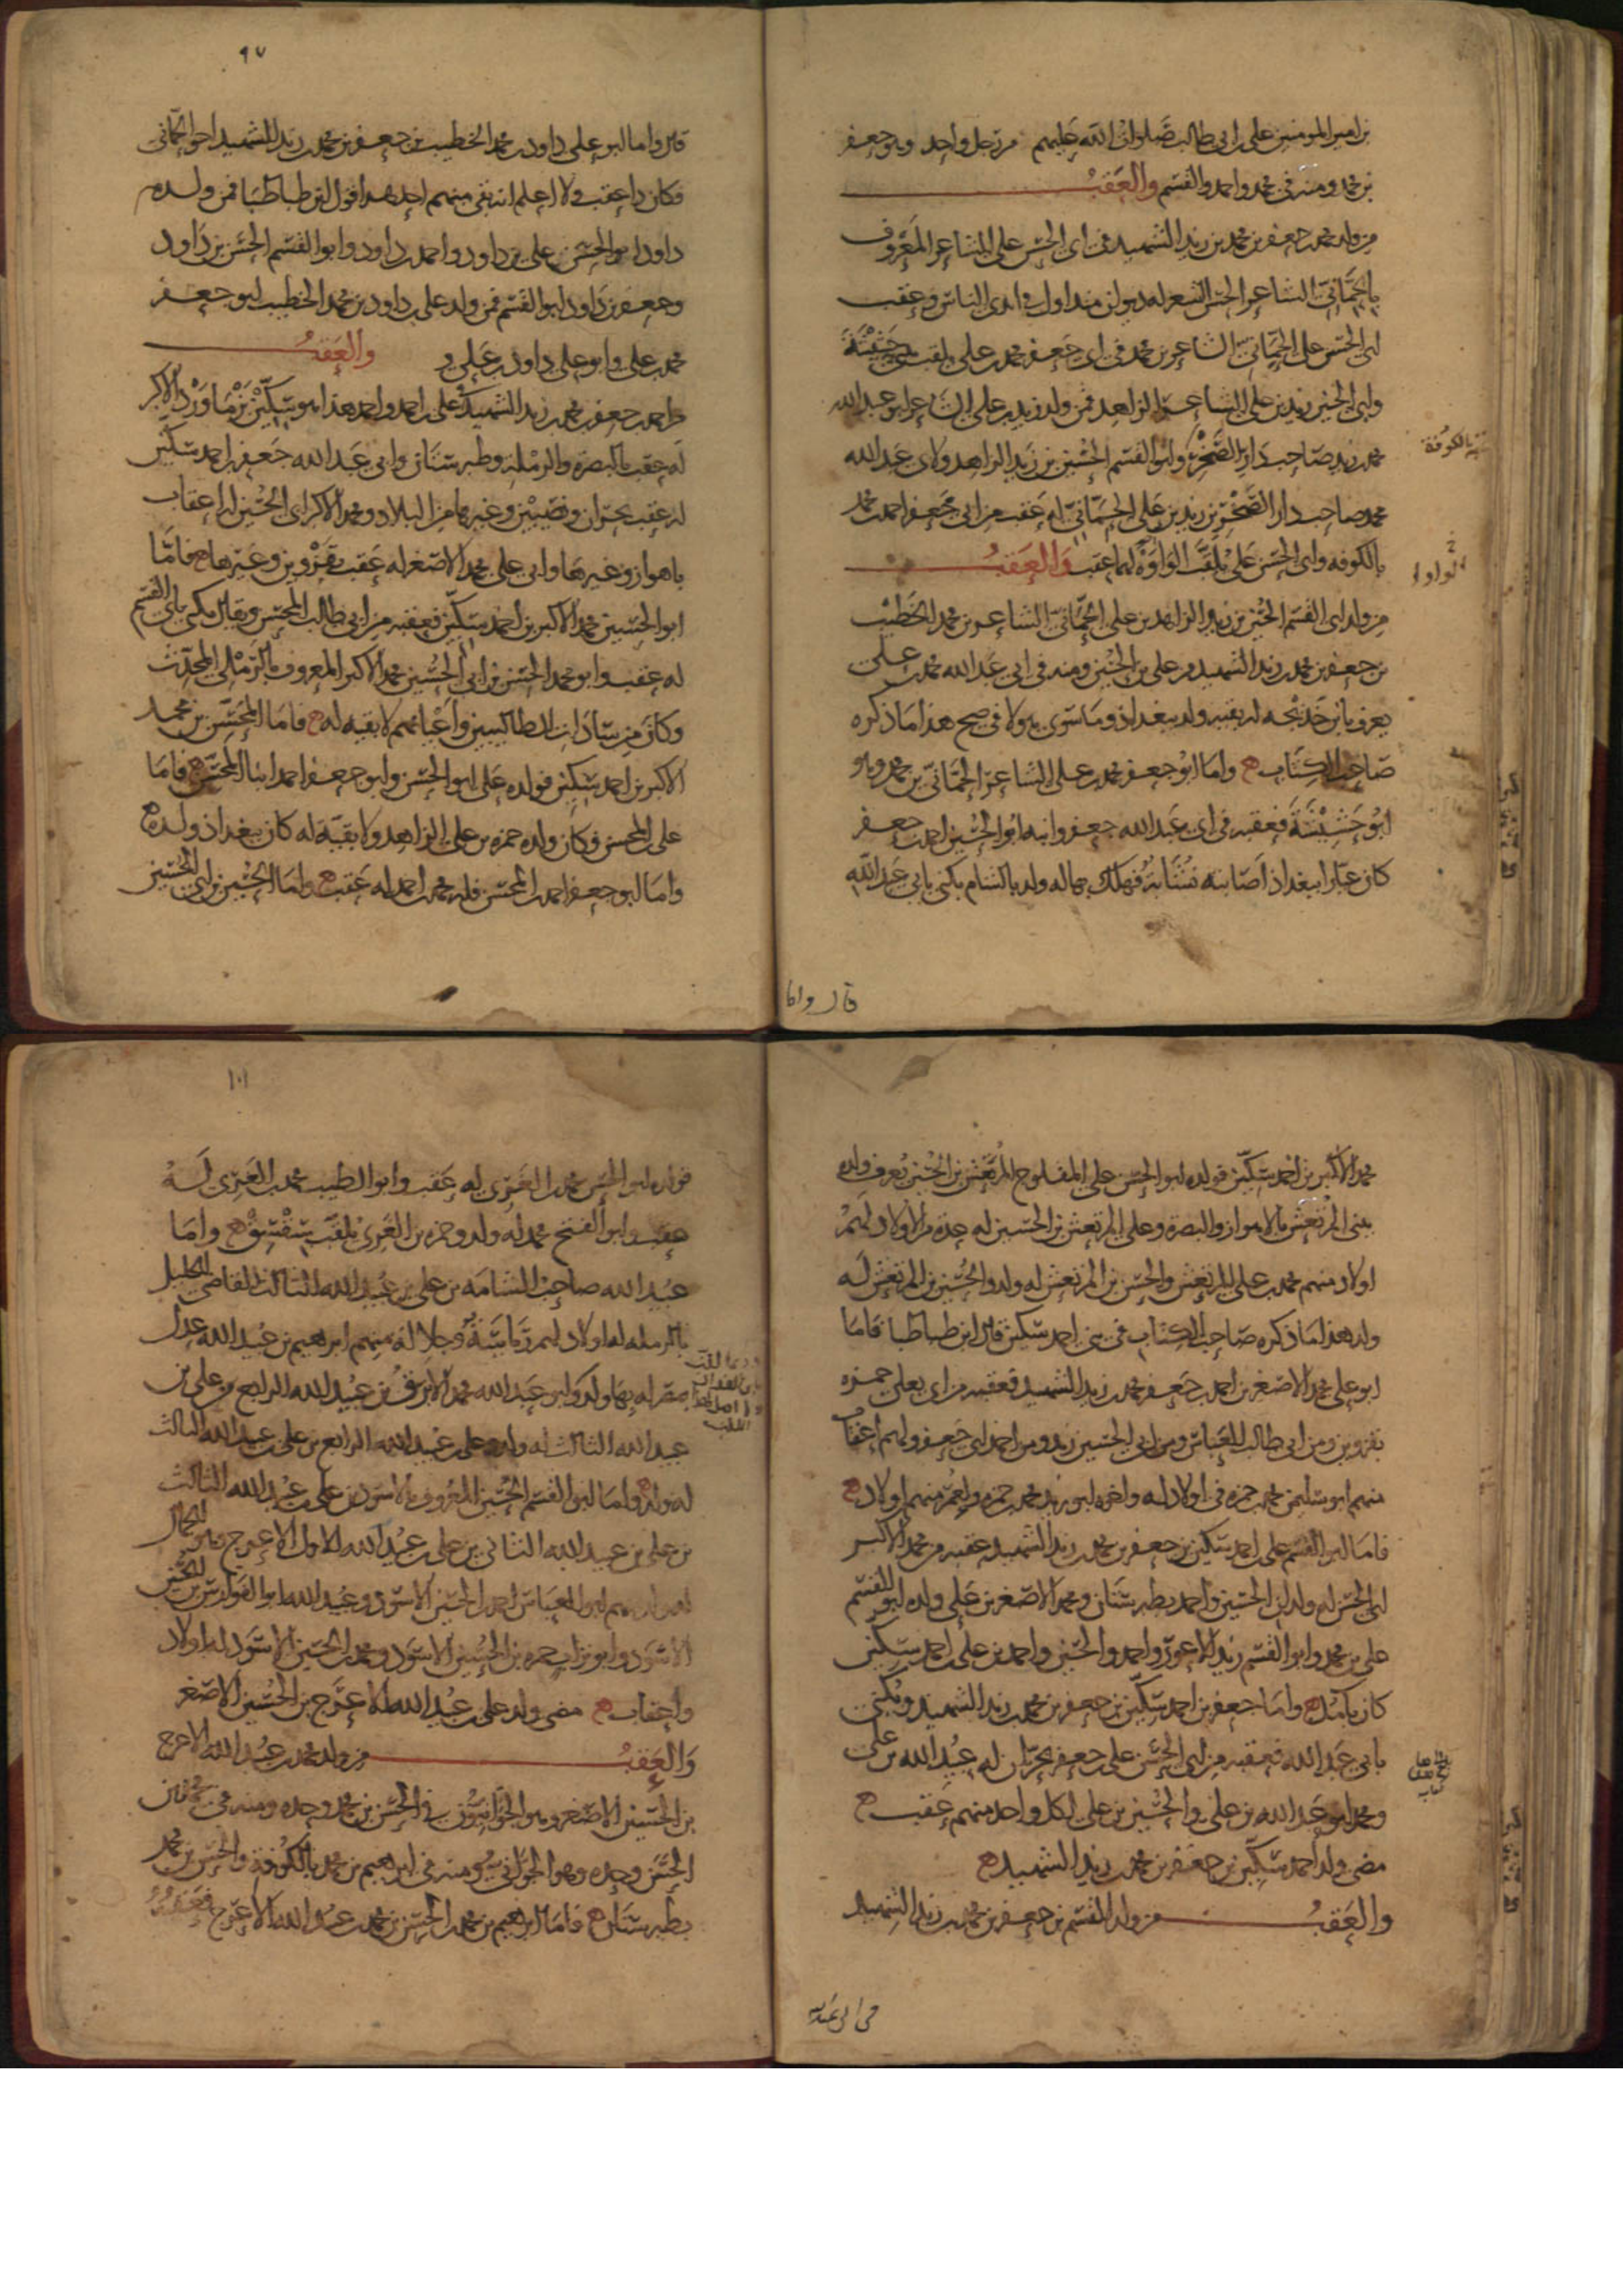 بن امير المومنين علي بن ابي طالب صلوات الله عليهم من رجل واحد وهو جعفر
بن محمد ومنه في محمد واحمد والقسم والعقب
من ولد محمد بن جعفر بن محمد بن زيد الشهيد في ابي الحسن علي الشاعر المعروف
بالحماني الشاعر الحسن الشعر له ديوان متداول في ايدي الناس وعقب
ابي الحسن علي الحماني الشاعر بن محمد في ابي جعفر محمد بن علي يلقب
وابي الحسين زيد بن علي الشاعر الزاهد فمن ولد زيد بن علي الشاعر ابو عبد الله
محمد بن زيد صاحب دار الصخر وابو القسم الحسين بن زيد الزاهد ولابي عبد الله
محمد صاحب دار الصخر بن زيد بن علي الحماني له عقب من ابي جعفر احمد بن محمد
بالكوفه وابي الحسن علي يلقب الواوه لهما عقب والعقب
من ولد ابي القسم الحسين بن زيد الزاهد بن علي الحماني الشاعر بن محمد الخطيب
بن جعفر بن محمد بن زيد الشهيد من علي بن الحسين ومنه في ابي عبد الله محمد بن علي
يعرف بابن خديجه له بقيه ولد ببغداذ وما سوى هولا في صح هذا ما ذكره
صاحب الكتاب واما ابو جعفر محمد بن علي الشاعر الحماني بن محمد وهو
ابو فعقبه في ابي عبد الله جعفر وابنه ابو الحسين احمد بن جعفر
كان عيارا ببغداذ اصابته نشابة فهلك بها له ولد بالشام يكنى بابي عبد الله
قال واما
٩٧
قال واما ابو علي داود بن محمد الخطيب بن جعفر بن محمد بن زيد الشهيد اخو الحماني
فكان ذا عقب ولا اعلم انه بقي منهم احد هذا قول ابن طباطبا فمن ولده
داود ابو الحسن علي بن داود واحمد بن داود وابو القسم الحسن بن داود
وجعفر بن داود ابو القسم فمن ولد علي بن داود بن محمد الخطيب ابو جعفر
محمد بن علي وابو علي داود بن علي والعقب
من احمد بن جعفر بن محمد بن زيد الشهيد في علي بن احمد واحمد هذا هو سكين من محمد الاكبر
له عقب بالبصرة والرملة وطبرستان وابي عبد الله جعفر بن احمد سكين
له عقب بحران ونصيبين وغيرهما من البلاد ومحمد الاكبر ابي الحسين له اعقاب
باهواز وغيرها وابي علي محمد الاصغر له عقب بقزوين وغيرها فاما
ابو الحسين محمد الاكبر بن احمد سكين فعقبه من ابي طالب المحسن ويقال يكنى بابي القسم
له عقب وابو محمد الحسن بن ابي الحسين محمد الاكبر المعروف بالرملي المحدث
وكان من سادات الطالبيين واعيانهم لا بقيه له فاما المحسن بن محمد
الاكبر بن احمد سكين فولده علي ابو الحسن وابو جعفر احمد ابنا المحسن فاما
علي بن المحسن فكان ولده حمزه بن علي الزاهد ولا بقية له كان ببغداذ ولده
واما ابو جعفر احمد بن المحسن فله محمد بن احمد له عقب واما الحسين بن ابي الحسين
محمد الاكبر بن احمد سكين فولده ابو الحسن علي المفلوج المرتعش بن الحسين يعرف ولده
ببني المرتعش بالاهواز والبصرة وعلي المرتعش بن الحسين له عدة من الاولاد لهم
اولاد منهم محمد بن علي المرتعش والحسن بن المرتعش له ولد والحسين بن المرتعش له
ولد هذا ما ذكره صاحب الكتاب في بني احمد سكين قال ابن طباطبا فاما
ابو علي محمد الاصغر بن احمد بن جعفر بن محمد بن زيد الشهيد فعقبه من ابي يعلى حمزه
بقزوين ومن ابي طالب العباس ومن ابي الحسين زيد ومن احمد ابي جعفر ولهم اعقاب
منهم ابو سليمن محمد بن حمزه في اولاد له واخوه ابو زيد محمد بن حمزه ولعمر منهم اولاد
فاما ابو القسم علي بن احمد سكين بن جعفر بن محمد بن زيد الشهيد عقبه من محمد الاكبر
ابي الحسن له ولد ابن الحسين واحمد بطبرستان ومحمد الاصغر بن علي ولده ابو القسم
علي بن محمد وابو القسم زيد الاعور واحمد والحسين واحمد بن علي بن احمد سكين
كان بامد واما جعفر بن احمد سكين بن جعفر بن محمد بن زيد الشهيد ويكنى
بابي عبد الله فعقبه من ابي الحسن علي بن جعفر بحران له عبيد الله بن علي
ومحمد ابو عبد الله بن علي والحسين بن علي لكل واحد منهم عقب
مضى ولد احمد سكين بن جعفر بن محمد بن زيد الشهيد
والعقب من ولد القسم بن جعفر بن محمد بن زيد الشهيد
في ابي عبد الله
١٠١
فولده ابو الحسن محمد بن العزي له عقب وابو الطيب محمد بن العزي له
عقب وابو الفتح محمد له ولد وحمزه بن العزي يلقب واما
عبيد الله صاحب الشامه بن علي بن عبيد الله الثالث القاضي الجليل
بالرمله له اولاد لهم رياسة وجلالة منهم ابرهيم بن عبيد الله عدل
بمصر له بها ولد وابو عبد الله محمد الازرق بن عبيد الله الرابع بن علي بن
عبيد الله الثالث له ولد وعلي بن عبيد الله الرابع بن علي بن عبيد الله الثالث
له ولد واما ابو القسم الحسين المعروف بالاسود بن علي بن عبيد الله الثالث
بن علي بن عبيد الله الثاني بن علي بن عبيد الله الاول الاعرج
ابو العباس احمد بن الحسين الاسود وعبيد الله ابو الفوارس بن الحسين
الاسود وابو تراب حمزه بن الحسين الاسود ومحمد بن الحسين الاسود له اولاد
واعقاب مضى ولد علي بن عبيد الله الاعرج بن الحسين الاصغر
والعقب من ولد محمد بن عبيد الله الاعرج
بن الحسين الاصغر وهو الجوانيون في الحسن بن محمد وحده ومنه في محمد بن
الحسن وحده وهو الجواني ومنه في ابرهيم بن محمد بالكوفة والحسن بن محمد
بطبرستان فاما ابرهيم بن محمد بن الحسن بن محمد بن عبيد الله الاعرج فعقبه